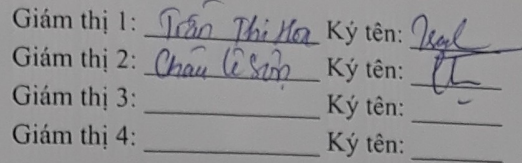 Giám thị 1: Trần Thị Hoa Ký tên:
Giám thị 2: Châu Ký tên:
Giám thị 3: Ký tên:
Giám thị 4: Ký tên: